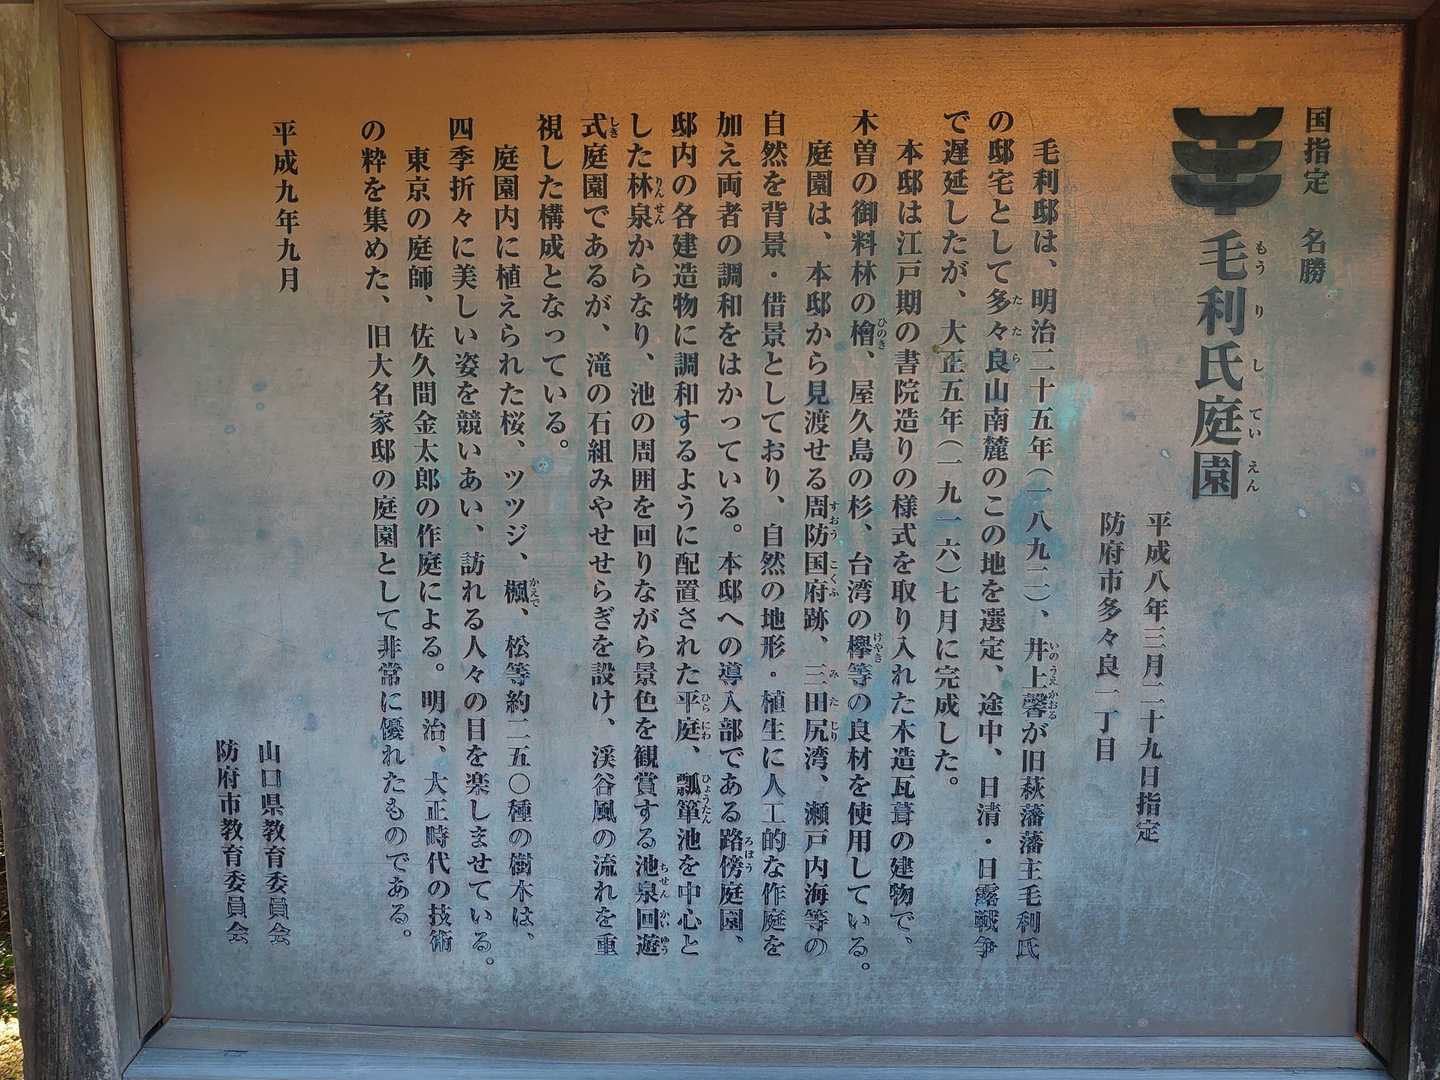 国指定　名勝
毛利氏庭園
もうりしていえん
平成八年三月二十九日指定
防府市多々良一丁目
毛利邸は、明治二十五年（一八九二）、井上馨が旧萩藩藩主毛利氏
いのうえかおる
の邸宅として多々良山南麓のこの地を選定、途中、日清・日露戦争
たたら
で遅延したが、大正五年（一九一六）七月に完成した。
本邸は江戸期の書院造りの様式を取り入れた木造瓦葺の建物で、
木曽の御料林の檜、屋久島の杉、台湾の欅等の良材を使用している。
ひのき
けやき
庭園は、本邸から見渡せる周防国府跡、三田尻湾、瀬戸内海等の
すおう
こくふ
みたじり
自然を背景・借景としており、自然の地形・植生に人工的な作庭を
加え両者の調和をはかっている。本邸への導入部である路傍庭園、
ろぼう
邸内の各建造物に調和するように配置された平庭、瓢箪池を中心と
ひらにわ
ひょうたん
した林泉からなり、池の周囲を回りながら景色を観賞する池泉回遊
りんせん
ちせん
かいゆう
式庭園であるが、滝の石組みやせせらぎを設け、渓谷風の流れを重
しき
視した構成となっている。
庭園内に植えられた桜、ツツジ、楓、松等約二五〇種の樹木は、
かえで
四季折々に美しい姿を競いあい、訪れる人々の目を楽しませている。
東京の庭師、佐久間金太郎の作庭による。明治、大正時代の技術
の粋を集めた、旧大名家邸の庭園として非常に優れたものである。
平成九年九月
山口県教育委員会
防府市教育委員会